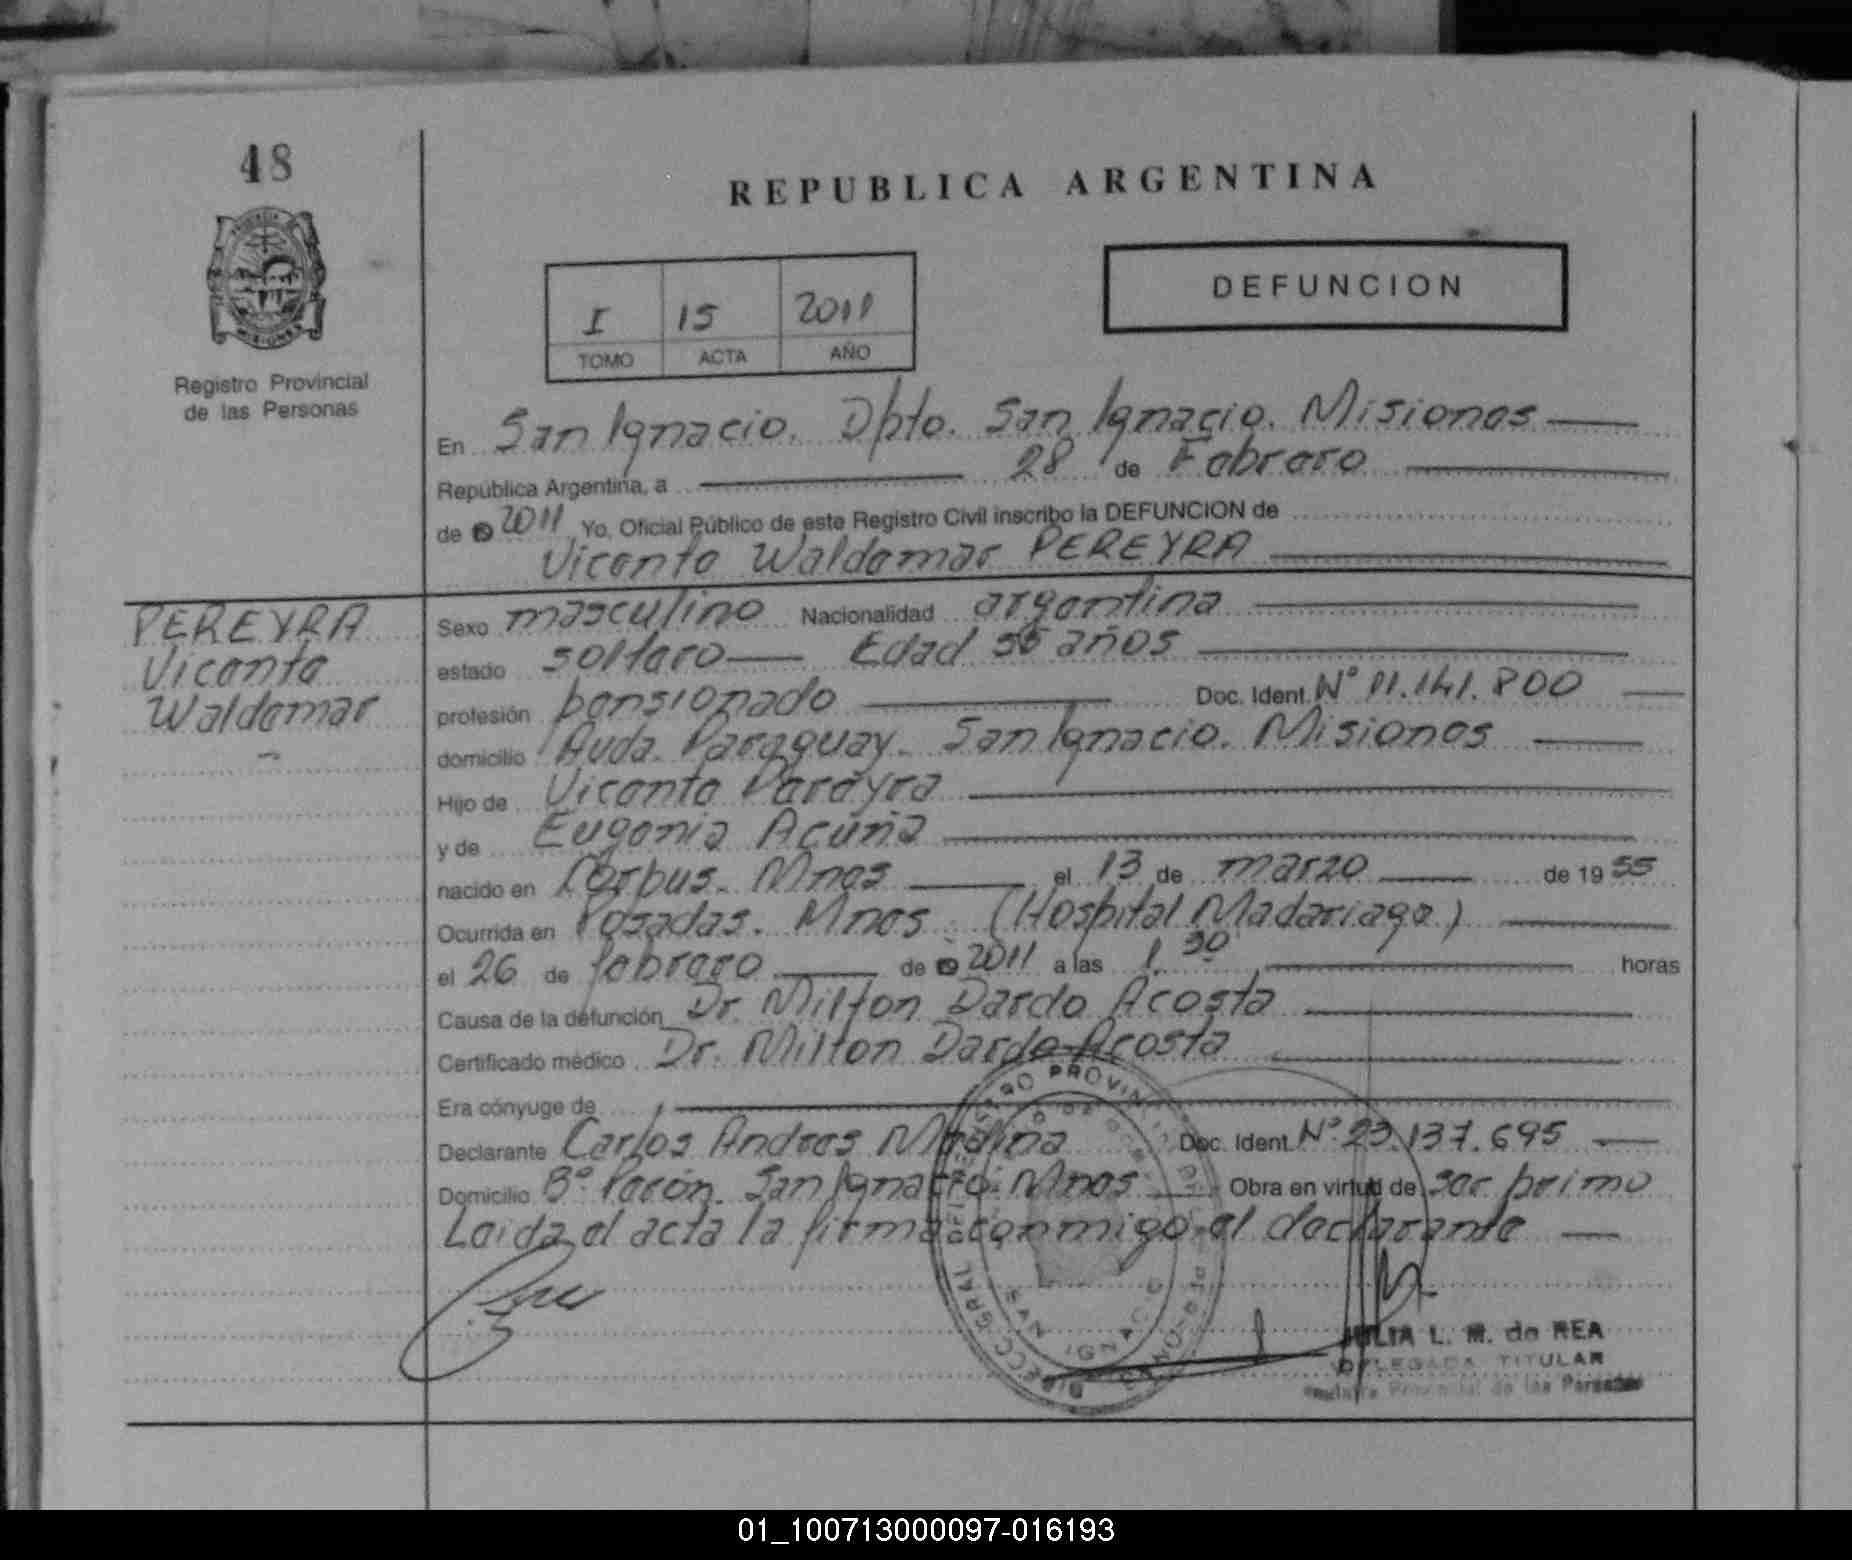 48
REPUBLICA ARGENTINA
I 15 2011
TOMO ACTA AÑO
DEFUNCION
Registro Provincial
de las Personas
En San Ignacio. Dpto. San Ignacio. Misiones
República Argentina, a 28 de Febrero
de 2011 Yo, Oficial Público de este Registro Civil inscribo la DEFUNCION de
Vicente Waldemar PEREYRA
PEREYRA
Vicente
Waldemar
Sexo masculino Nacionalidad argentina
estado soltero Edad 55 años
profesión pensionado Doc. Ident. N° 11.141.800
domicilio Avda. Paraguay. San Ignacio. Misiones
Hijo de Vicente Pereyra
y de Eugenia Acuña
nacido en Corpus. Mnes el 13 de marzo de 1955
Ocurrida en Posadas. Mnes. (Hospital Madariaga)
el 26 de febrero de 2011 a las 1.30 horas
Causa de la defunción Dr. Milton Dardo Acosta
Certificado médico Dr. Milton Dardo Acosta
Era cónyuge de
Declarante Carlos Andres Medina Doc. Ident. N° 23.137.695
Domicilio B° Perón. San Ignacio. Mnes Obra en virtud de ser primo
Leida el acta la firma conmigo el declarante
JULIA L. M. de REA
DELEGADA TITULAR
Registro Provincial de las Personas
01_100713000097-016193